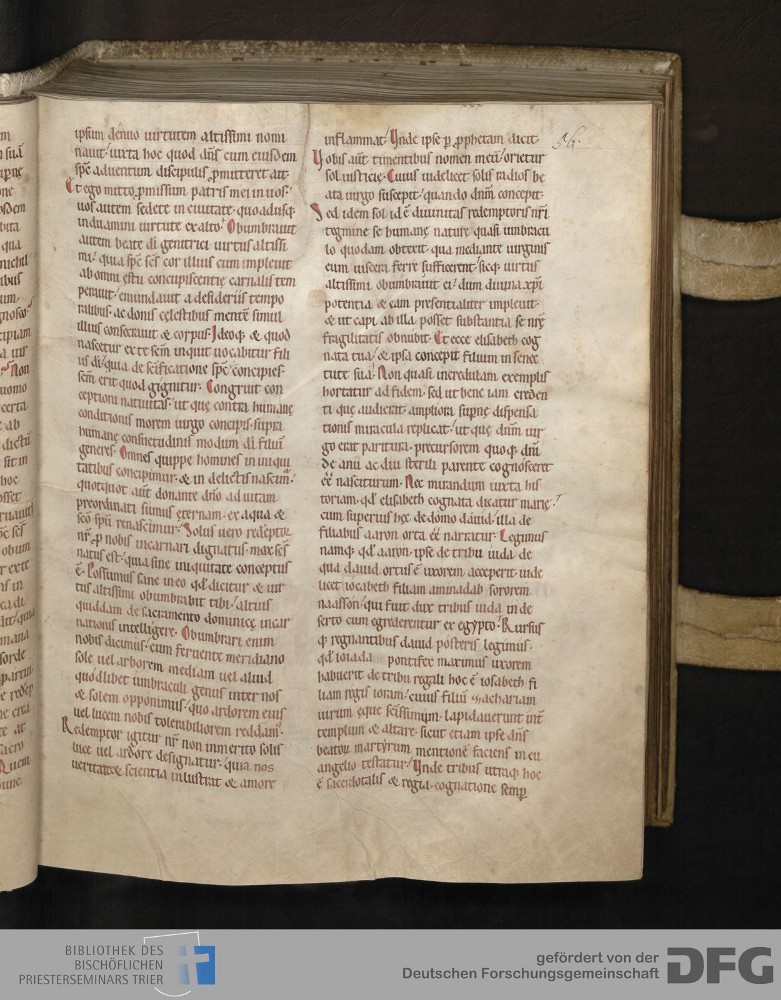 ipsum denuo uirtutem altissimi nomi
nauit/ iuxta hoc quod dñs cum eiusdem
spē aduentum discipulis ꝓmitteret ait·
Et ego mitto ꝓmissum patris mei in uos/
uos autem sedete in ciuitate· quoadusq;
induamini uirtute ex alto/ Obumbrauit
autem beate dī genitrici uirtus altissi
mi/ quia spē scs cor illius cum impleuit
ab omni estu concupiscentię carnalis tem
perauit/ emundauit a desideriis tempo
ralibus· ac donis celestibus mentē simul
illius consecrauit & corpus/ Ideoq; & quod
nascetur ex te scm̄ inquit uocabitur fili
us dī/ quia de scificatione spē concipies·
scm̄ erit quod gignetur· Congruit con
ceptioni natiuitas/ ut quę contra humanę
conditionis morem uirgo concipis· supra
humanę consuetudinis modum dī filiū
generes· Omnes quippe homines in iniqui
tatibus concipimur· & in delictis nascim̄·
quotquot aūt donante dño ad uitam
preordinati sumus ęternam· ex aqua &
scō spū renascimur· Solus uero redēptor
nr̄ ꝓ nobis incarnari dignatus· mox scs
natus est· quia sine iniquitate conceptus
ē· Possumus sane in eo qd̄ dicitur & uir
tus altissimi obumbrabit tibi/ altius
quiddam de sacramento dominicę incar
nationis intelligere· Obumbrari enim
nobis dicimus/ cum feruente meridiano
sole uel arborem mediam uel aliud
quodlibet umbraculi genus inter nos
& solem opponimus/ quo ardorem eius
uel lucem nobis tolerabiliorem reddam̄·
Redemptor igitur nr̄ non inmerito solis
luce uel ardore designatur· quia nos
ueritate & scientia inlustrat & amore
inflammat/ Vnde ipse ꝑ ꝓphetam dicit·
Vobis aūt timentibus nomen meū/ orietur
sol iusticię· Cuius uidelicet solis radios be
ata uirgo suscepit/ quando dnm̄ concepit·
Sed idem sol id ē diuinitas redemptoris nr̄i
tegmine se humanę naturę quasi umbracu
lo quodam obtexit· qua mediante uirginis
eum uiscera ferre sufficerent/ sicq; uirtus
altissimi obumbrauit ei/ dum diuina xpī
potentia & eam presentialiter impleuit·
& ut capi ab illa posset substantia se nr̄ę
fragilitatis obnubit· Et ecce elisabeth cog
nata tua/ & ipsa concepit filium in senec
tute sua/ Non quasi incredulam exemplis
hortatur ad fidem· sed ut bene iam creden
ti quę audierat· ampliora supernę dispensa
tionis miracula replicat/ ut quę dnm̄ uir
go erat paritura· precursorem quoq; dnī
de anu ac diu sterili parente cognosceret
ēe nasciturum· Nec mirandum iuxta his
toriam· qd̄ elisabeth cognata dicatur marię/
cum superius hęc de domo dauid/ illa de
filiabus aaron orta ēe narratur· Legimus
namq; qd̄ aaron ipse de tribu iuda· de
qua dauid ortus ē uxorem acceperit· uide
licet iocabeth filiam aminadab sororem
naasson/ qui fuit dux tribus iuda in de
serto cum egrederentur ex egypto· Rursus
q; regnantibus dauid posteris legimus·
qd̄ ioiada pontifex maximus uxorem
habuerit de tribu regali hoc ē iosabeth fi
liam regis ioram/ cuius filiū zachariam
uirum ęque scissimum· lapidauerunt int̄
templum & altare· sicut etiam ipse dñs
beatoꝝ martyrum mentionē faciens in eu
angelio testatur/ Vnde tribus utraq; hoc
ē sacerdotalis & regia· cognatione semꝑ
56·
BIBLIOTHEK DES
BISCHÖFLICHEN
PRIESTERSEMINARS TRIER
gefördert von der
Deutschen Forschungsgemeinschaft
DFG